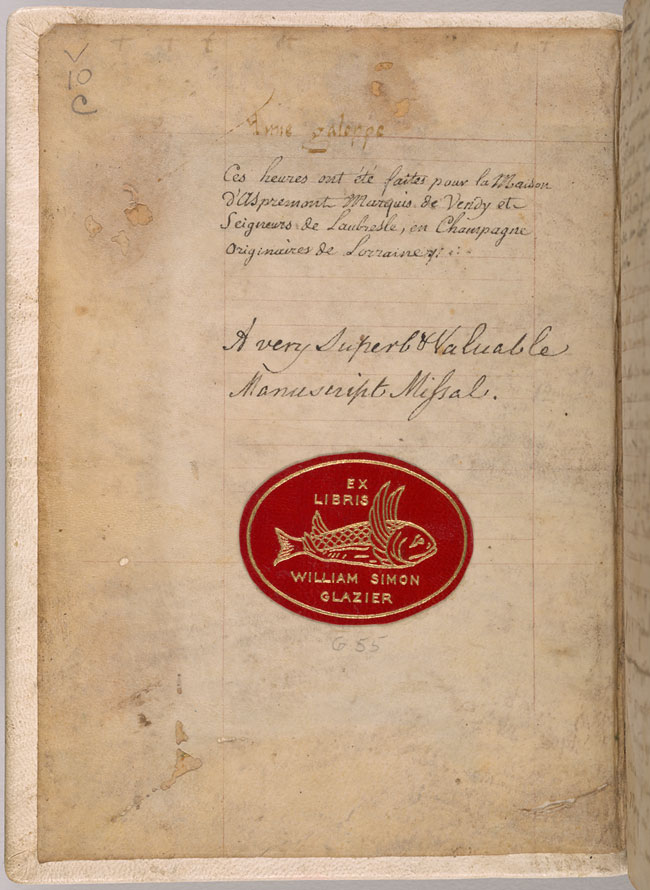 V
10
C
Ces heures ont été faites pour la Maison
d'Aspremont Marquis de Vendy et
Seigneurs de Laubresle, en Champagne
originaires de Lorraine
A very Superb & Valuable
Manuscript Missal.
EX
LIBRIS
WILLIAM SIMON
GLAZIER
G 55